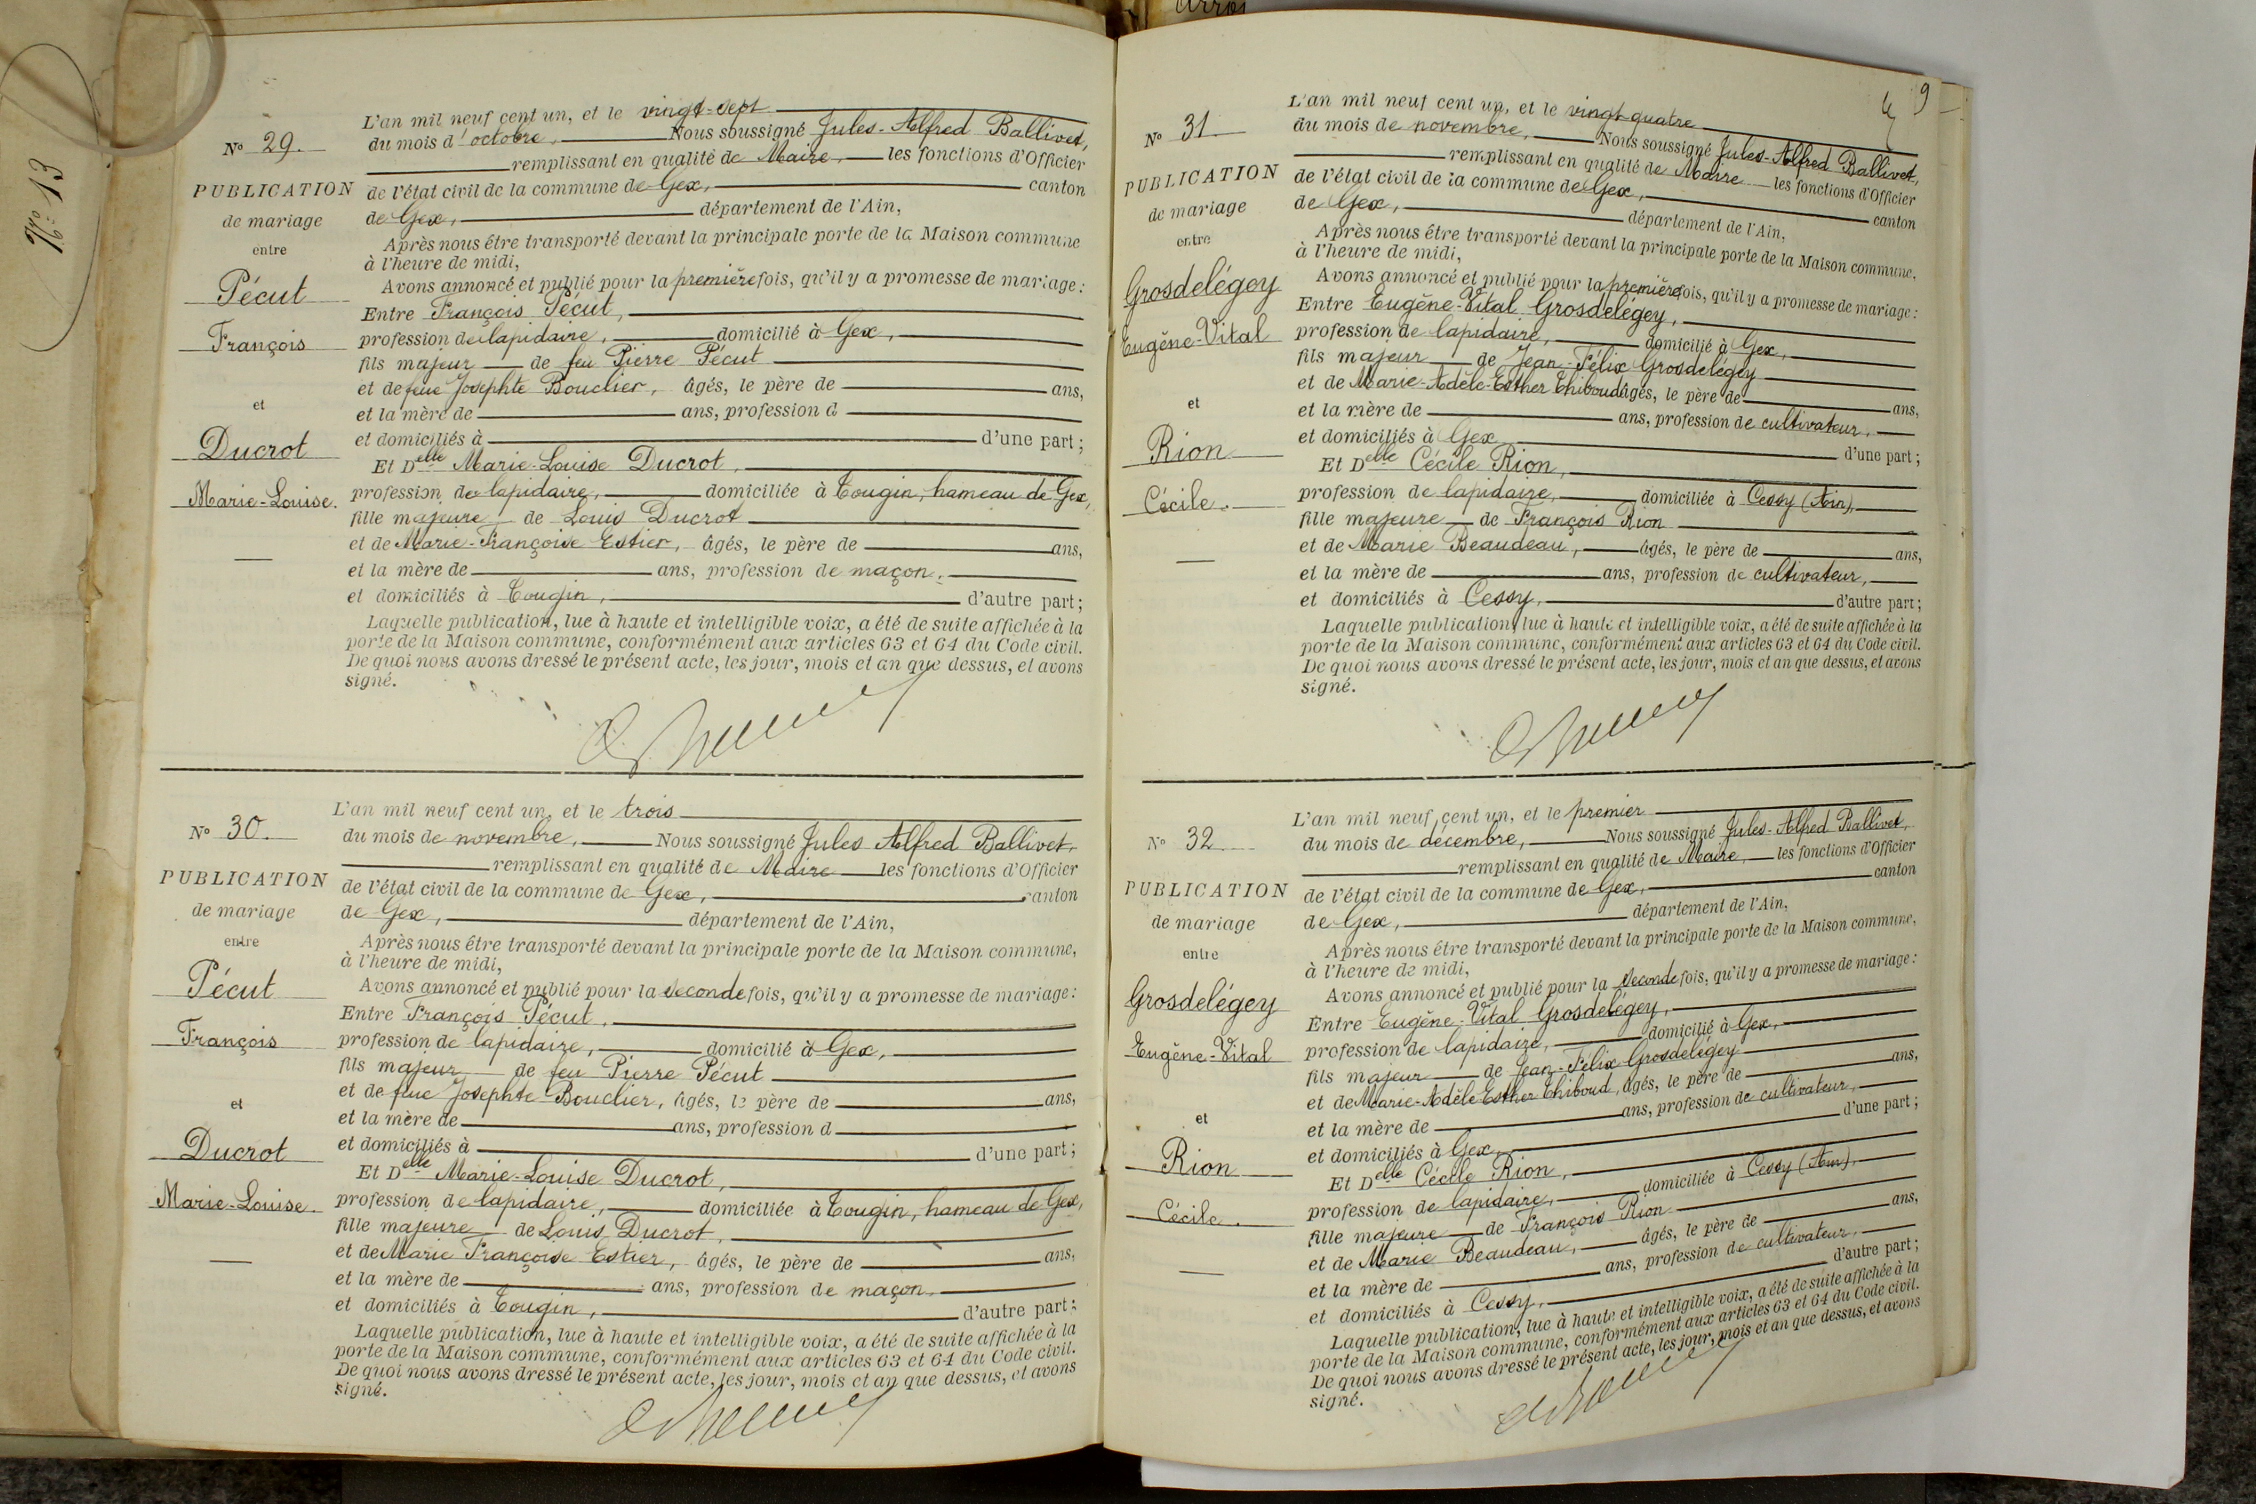 N° 13
N° 29.
PUBLICATION
de mariage
entre
Pécut
François
et
Ducrot
Marie-Louise.
L'an mil neuf cent un, et le vingt-sept
du mois d'octobre, Nous soussigné Jules-Alfred Ballivet,
remplissant en qualité de Maire, les fonctions d'Officier
de l'état civil de la commune de Gex, canton
de Gex, département de l'Ain,
Après nous être transporté devant la principale porte de la Maison commune
à l'heure de midi,
Avons annoncé et publié pour la première fois, qu'il y a promesse de mariage :
Entre François Pécut,
profession de lapidaire, domicilié à Gex,
fils majeur de feu Pierre Pécut
et de feue Josephte Bouclier, âgés, le père de ans,
et la mère de ans, profession d
et domiciliés à d'une part ;
Et Delle Marie-Louise Ducrot,
profession de lapidaire, domiciliée à Tougin, hameau de Gex,
fille majeure de Louis Ducrot
et de Marie-Françoise Estier, âgés, le père de ans,
et la mère de ans, profession de maçon,
et domiciliés à Tougin, d'autre part ;
Laquelle publication, lue à haute et intelligible voix, a été de suite affichée à la
porte de la Maison commune, conformément aux articles 63 et 64 du Code civil.
De quoi nous avons dressé le présent acte, les jour, mois et an que dessus, et avons
signé.
N° 30.
PUBLICATION
de mariage
entre
Pécut
François
et
Ducrot
Marie-Louise.
L'an mil neuf cent un, et le trois
du mois de novembre, Nous soussigné Jules Alfred Ballivet,
remplissant en qualité de Maire les fonctions d'Officier
de l'état civil de la commune de Gex, canton
de Gex, département de l'Ain,
Après nous être transporté devant la principale porte de la Maison commune,
à l'heure de midi,
Avons annoncé et publié pour la seconde fois, qu'il y a promesse de mariage :
Entre François Pécut,
profession de lapidaire, domicilié à Gex,
fils majeur de feu Pierre Pécut
et de feue Josephte Bouclier, âgés, le père de ans,
et la mère de ans, profession d
et domiciliés à d'une part ;
Et Delle Marie-Louise Ducrot,
profession de lapidaire, domiciliée à Tougin, hameau de Gex,
fille majeure de Louis Ducrot,
et de Marie Françoise Estier, âgés, le père de ans,
et la mère de ans, profession de maçon,
et domiciliés à Tougin, d'autre part ;
Laquelle publication, lue à haute et intelligible voix, a été de suite affichée à la
porte de la Maison commune, conformément aux articles 63 et 64 du Code civil.
De quoi nous avons dressé le présent acte, les jour, mois et an que dessus, et avons
signé.
9
N° 31
PUBLICATION
de mariage
entre
Grosdelégey
Eugène-Vital
et
Rion
Cécile.
L'an mil neuf cent un, et le vingt-quatre
du mois de novembre, Nous soussigné Jules-Alfred Ballivet,
remplissant en qualité de Maire les fonctions d'Officier
de l'état civil de la commune de Gex, canton
de Gex, département de l'Ain,
Après nous être transporté devant la principale porte de la Maison commune.
à l'heure de midi,
Avons annoncé et publié pour la première fois, qu'il y a promesse de mariage :
Entre Eugène-Vital Grosdelégey,
profession de lapidaire, domicilié à Gex,
fils majeur de Jean-Félix Grosdelégey
et de Marie-Adèle-Esther Thiboud, âgés, le père de ans,
et la mère de ans, profession de cultivateur,
et domiciliés à Gex d'une part ;
Et Delle Cécile Rion,
profession de lapidaire, domiciliée à Cessy (Ain),
fille majeure de François Rion
et de Marie Beaudeau, âgés, le père de ans,
et la mère de ans, profession de cultivateur,
et domiciliés à Cessy, d'autre part ;
Laquelle publication, lue à haute et intelligible voix, a été de suite affichée à la
porte de la Maison commune, conformément aux articles 63 et 64 du Code civil.
De quoi nous avons dressé le présent acte, les jour, mois et an que dessus, et avons
signé.
N° 32
PUBLICATION
de mariage
entre
Grosdelégey
Eugène-Vital
et
Rion
Cécile.
L'an mil neuf cent un, et le premier
du mois de décembre, Nous soussigné Jules-Alfred Ballivet,
remplissant en qualité de Maire, les fonctions d'Officier
de l'état civil de la commune de Gex, canton
de Gex, département de l'Ain,
Après nous être transporté devant la principale porte de la Maison commune,
à l'heure de midi,
Avons annoncé et publié pour la seconde fois, qu'il y a promesse de mariage :
Entre Eugène-Vital Grosdelégey,
profession de lapidaire, domicilié à Gex,
fils majeur de Jean-Félix Grosdelégey
et de Marie-Adèle Esther Thiboud, âgés, le père de ans,
et la mère de ans, profession de cultivateur,
et domiciliés à Gex, d'une part ;
Et Delle Cécile Rion,
profession de lapidaire, domiciliée à Cessy (Ain),
fille majeure de François Rion
et de Marie Beaudeau, âgés, le père de ans,
et la mère de ans, profession de cultivateur,
et domiciliés à Cessy, d'autre part ;
Laquelle publication, lue à haute et intelligible voix, a été de suite affichée à la
porte de la Maison commune, conformément aux articles 63 et 64 du Code civil.
De quoi nous avons dressé le présent acte, les jour, mois et an que dessus, et avons
signé.